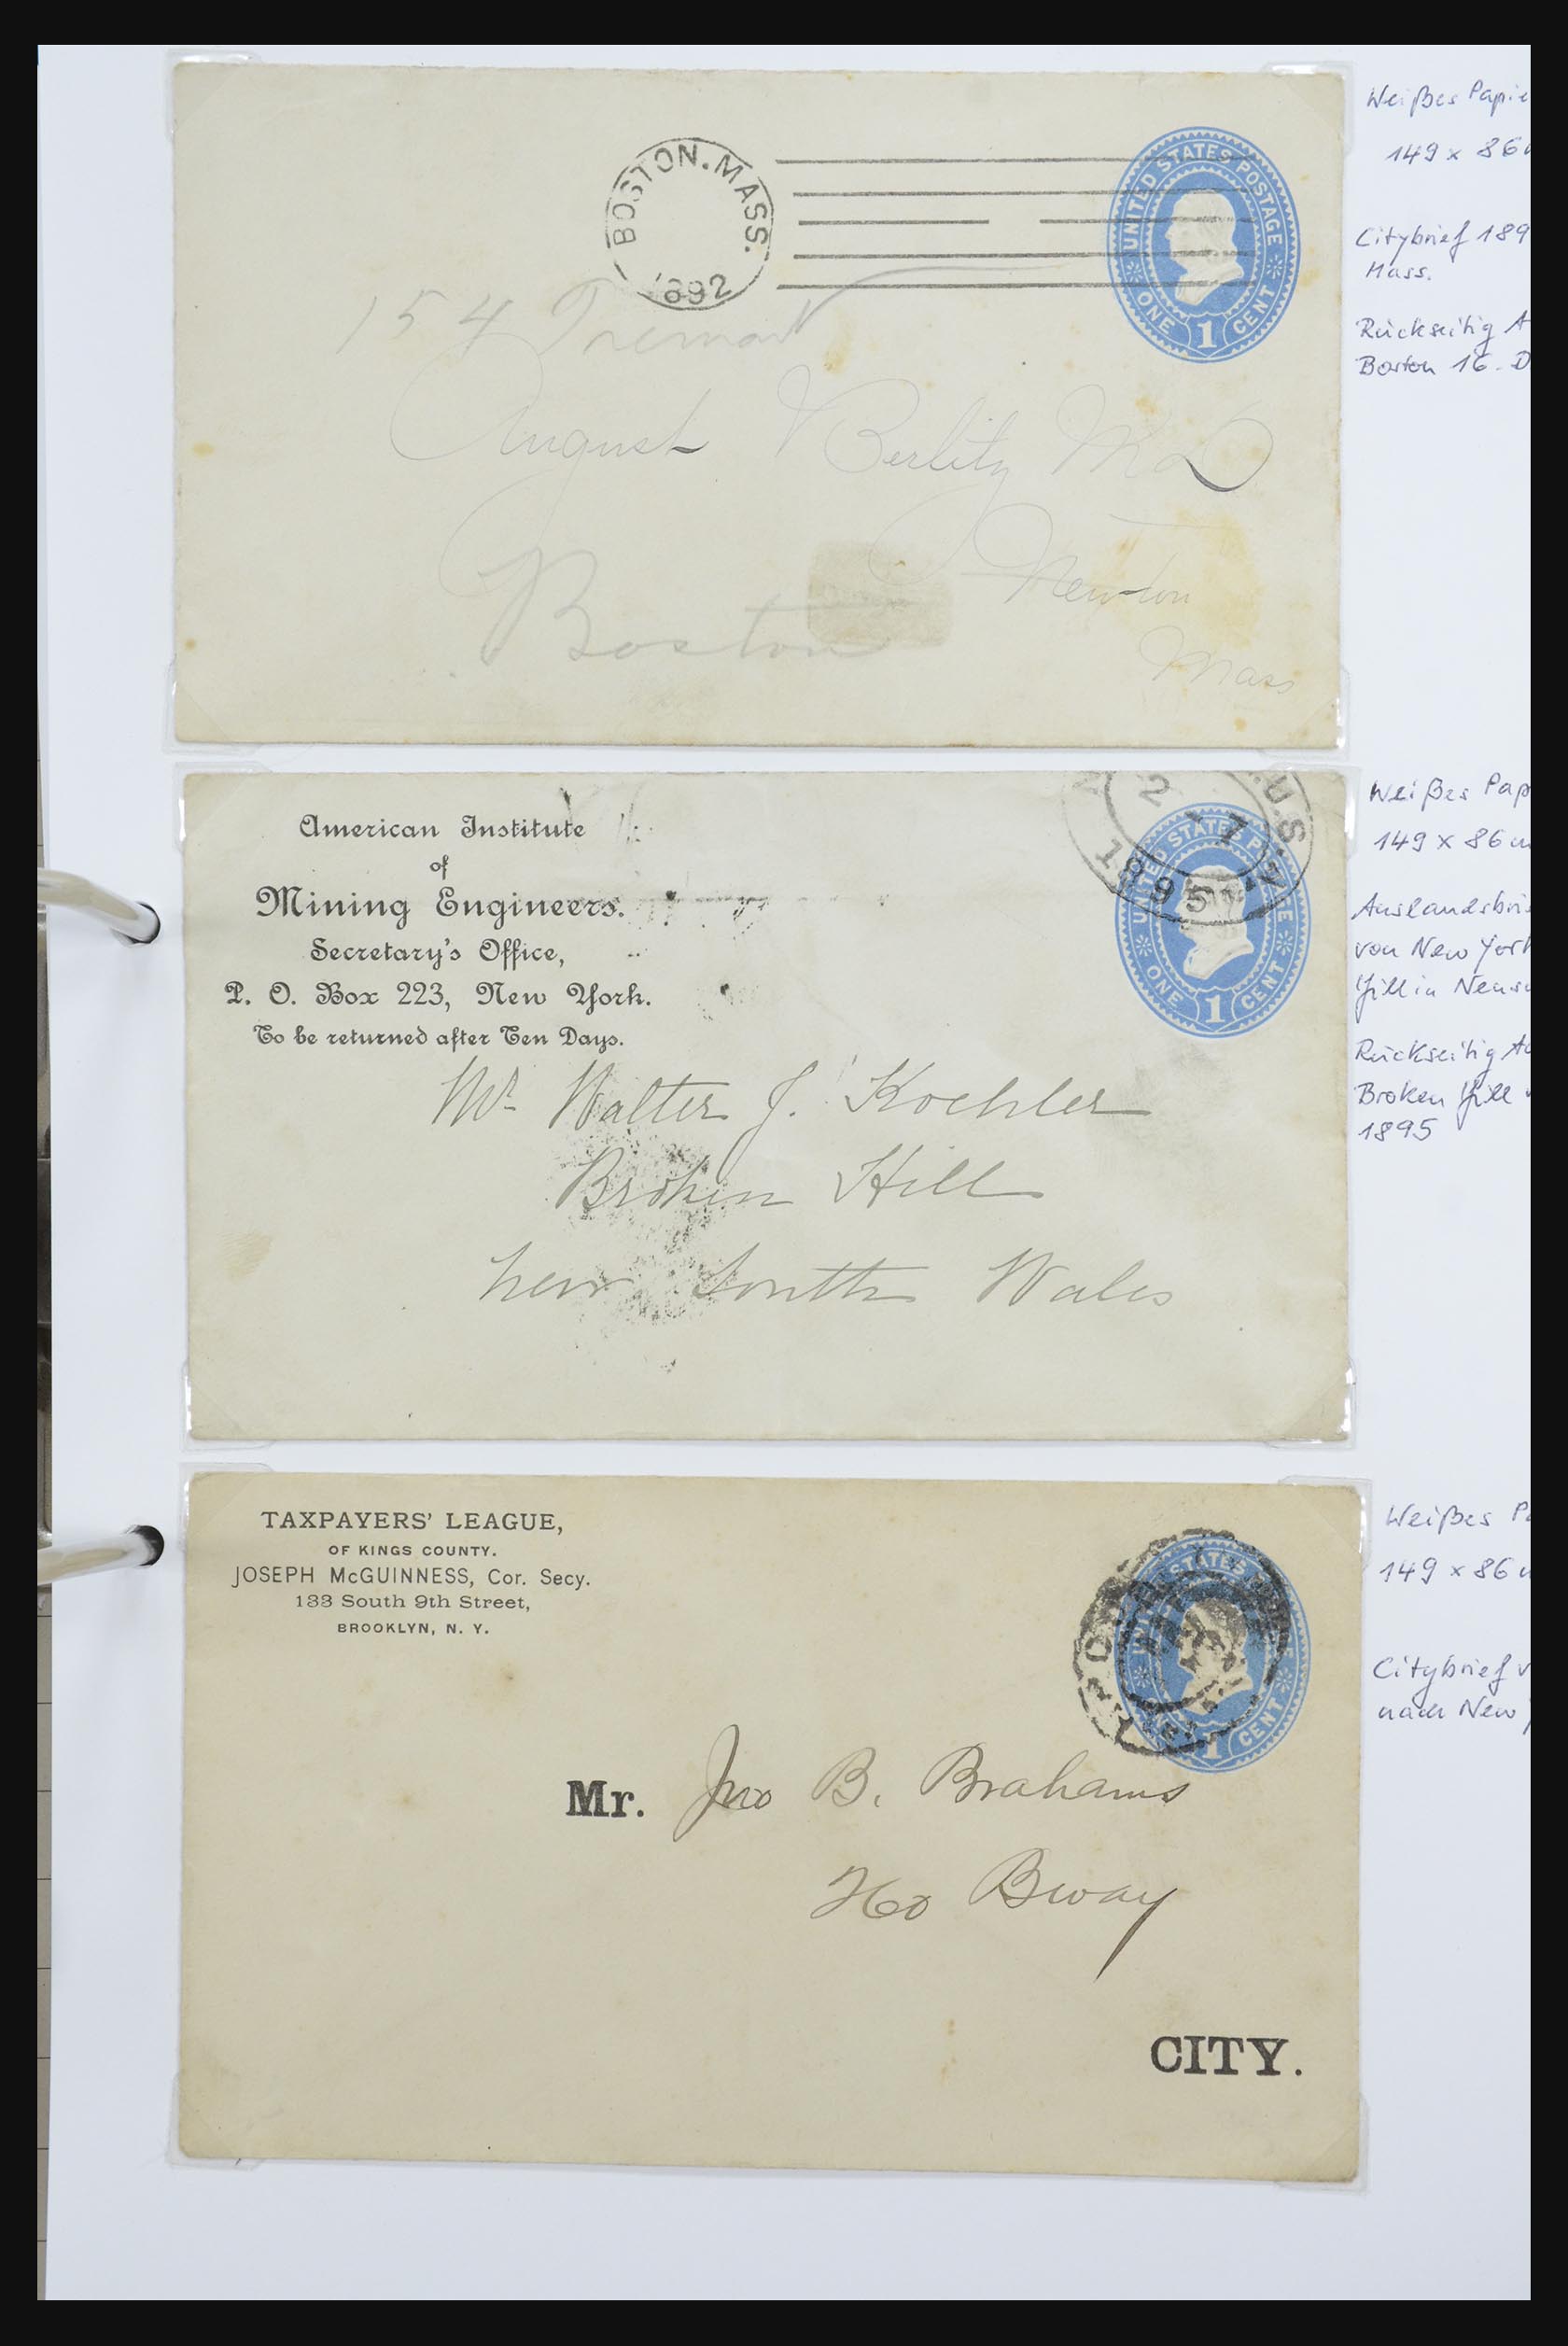 Weißes Papie
149 x 86
Citybrief 189
Mass.
Rückseitig A
Boston 16. D
BOSTON. MASS.
1892
UNITED STATES POSTAGE
ONE 1 CENT
154 Tremont
August Berlitz MD
Newton
Boston
Mass
Weißes Pap
149 x 86
Auslandsbrie
von New York
Hill in Neus
Rückseitig A
Broken Hill
1895
American Institute
of
Mining Engineers.
Secretary's Office,
P. O. Box 223, New York.
To be returned after Ten Days.
2
U.S
1895
UNITED STATES POSTAGE
ONE 1 CENT
Mr. Walter J. Koehler
Broken Hill
New South Wales
Weißes P
149 x 86
Citybrief v
nach New
TAXPAYERS' LEAGUE,
OF KINGS COUNTY.
JOSEPH McGUINNESS, Cor. Secy.
133 South 9th Street,
BROOKLYN, N. Y.
STATES
1 CENT
Mr. Jno B. Brahams
260 Bway
CITY.